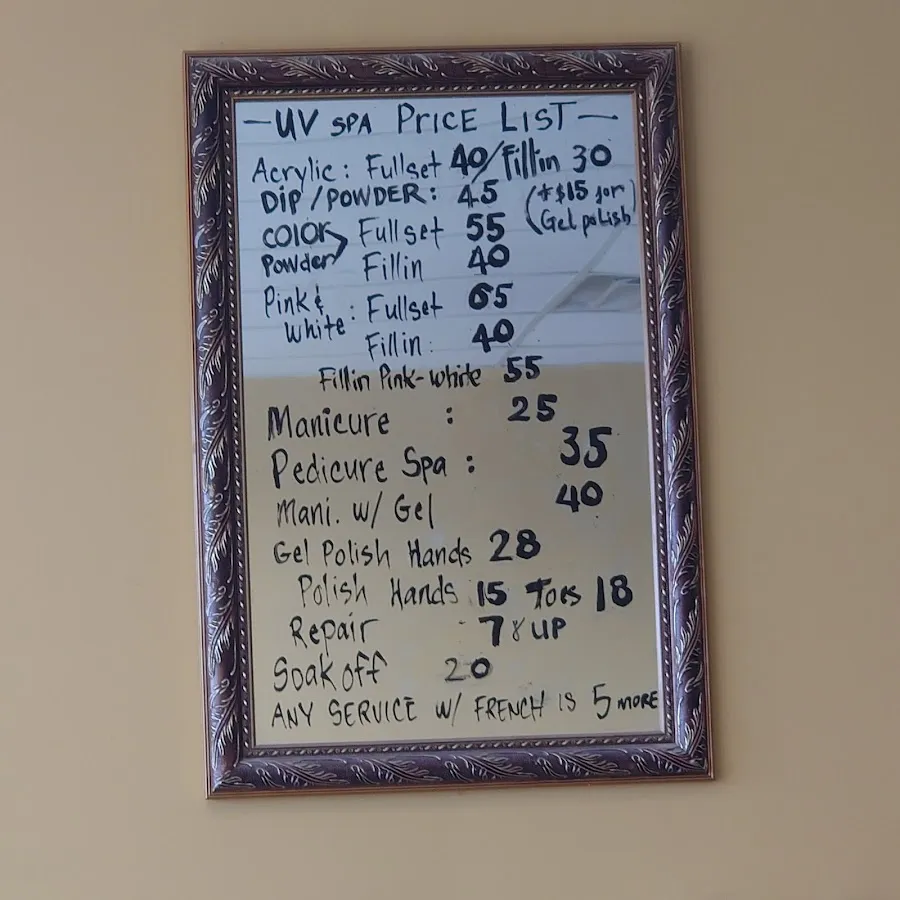 — UV SPA PRICE LIST —
Acrylic: Fullset 40/Fillin 30
DIP/POWDER: 45 (+$15 for Gel polish)
COLOR Powder > Fullset 55
Fillin 40
Pink & White: Fullset 65
Fillin: 40
Fillin Pink-white 55
Manicure : 25
Pedicure Spa : 35
Mani. w/ Gel 40
Gel Polish Hands 28
Polish Hands 15 Toes 18
Repair 7 & UP
Soak off 20
ANY SERVICE W/ FRENCH IS 5 MORE